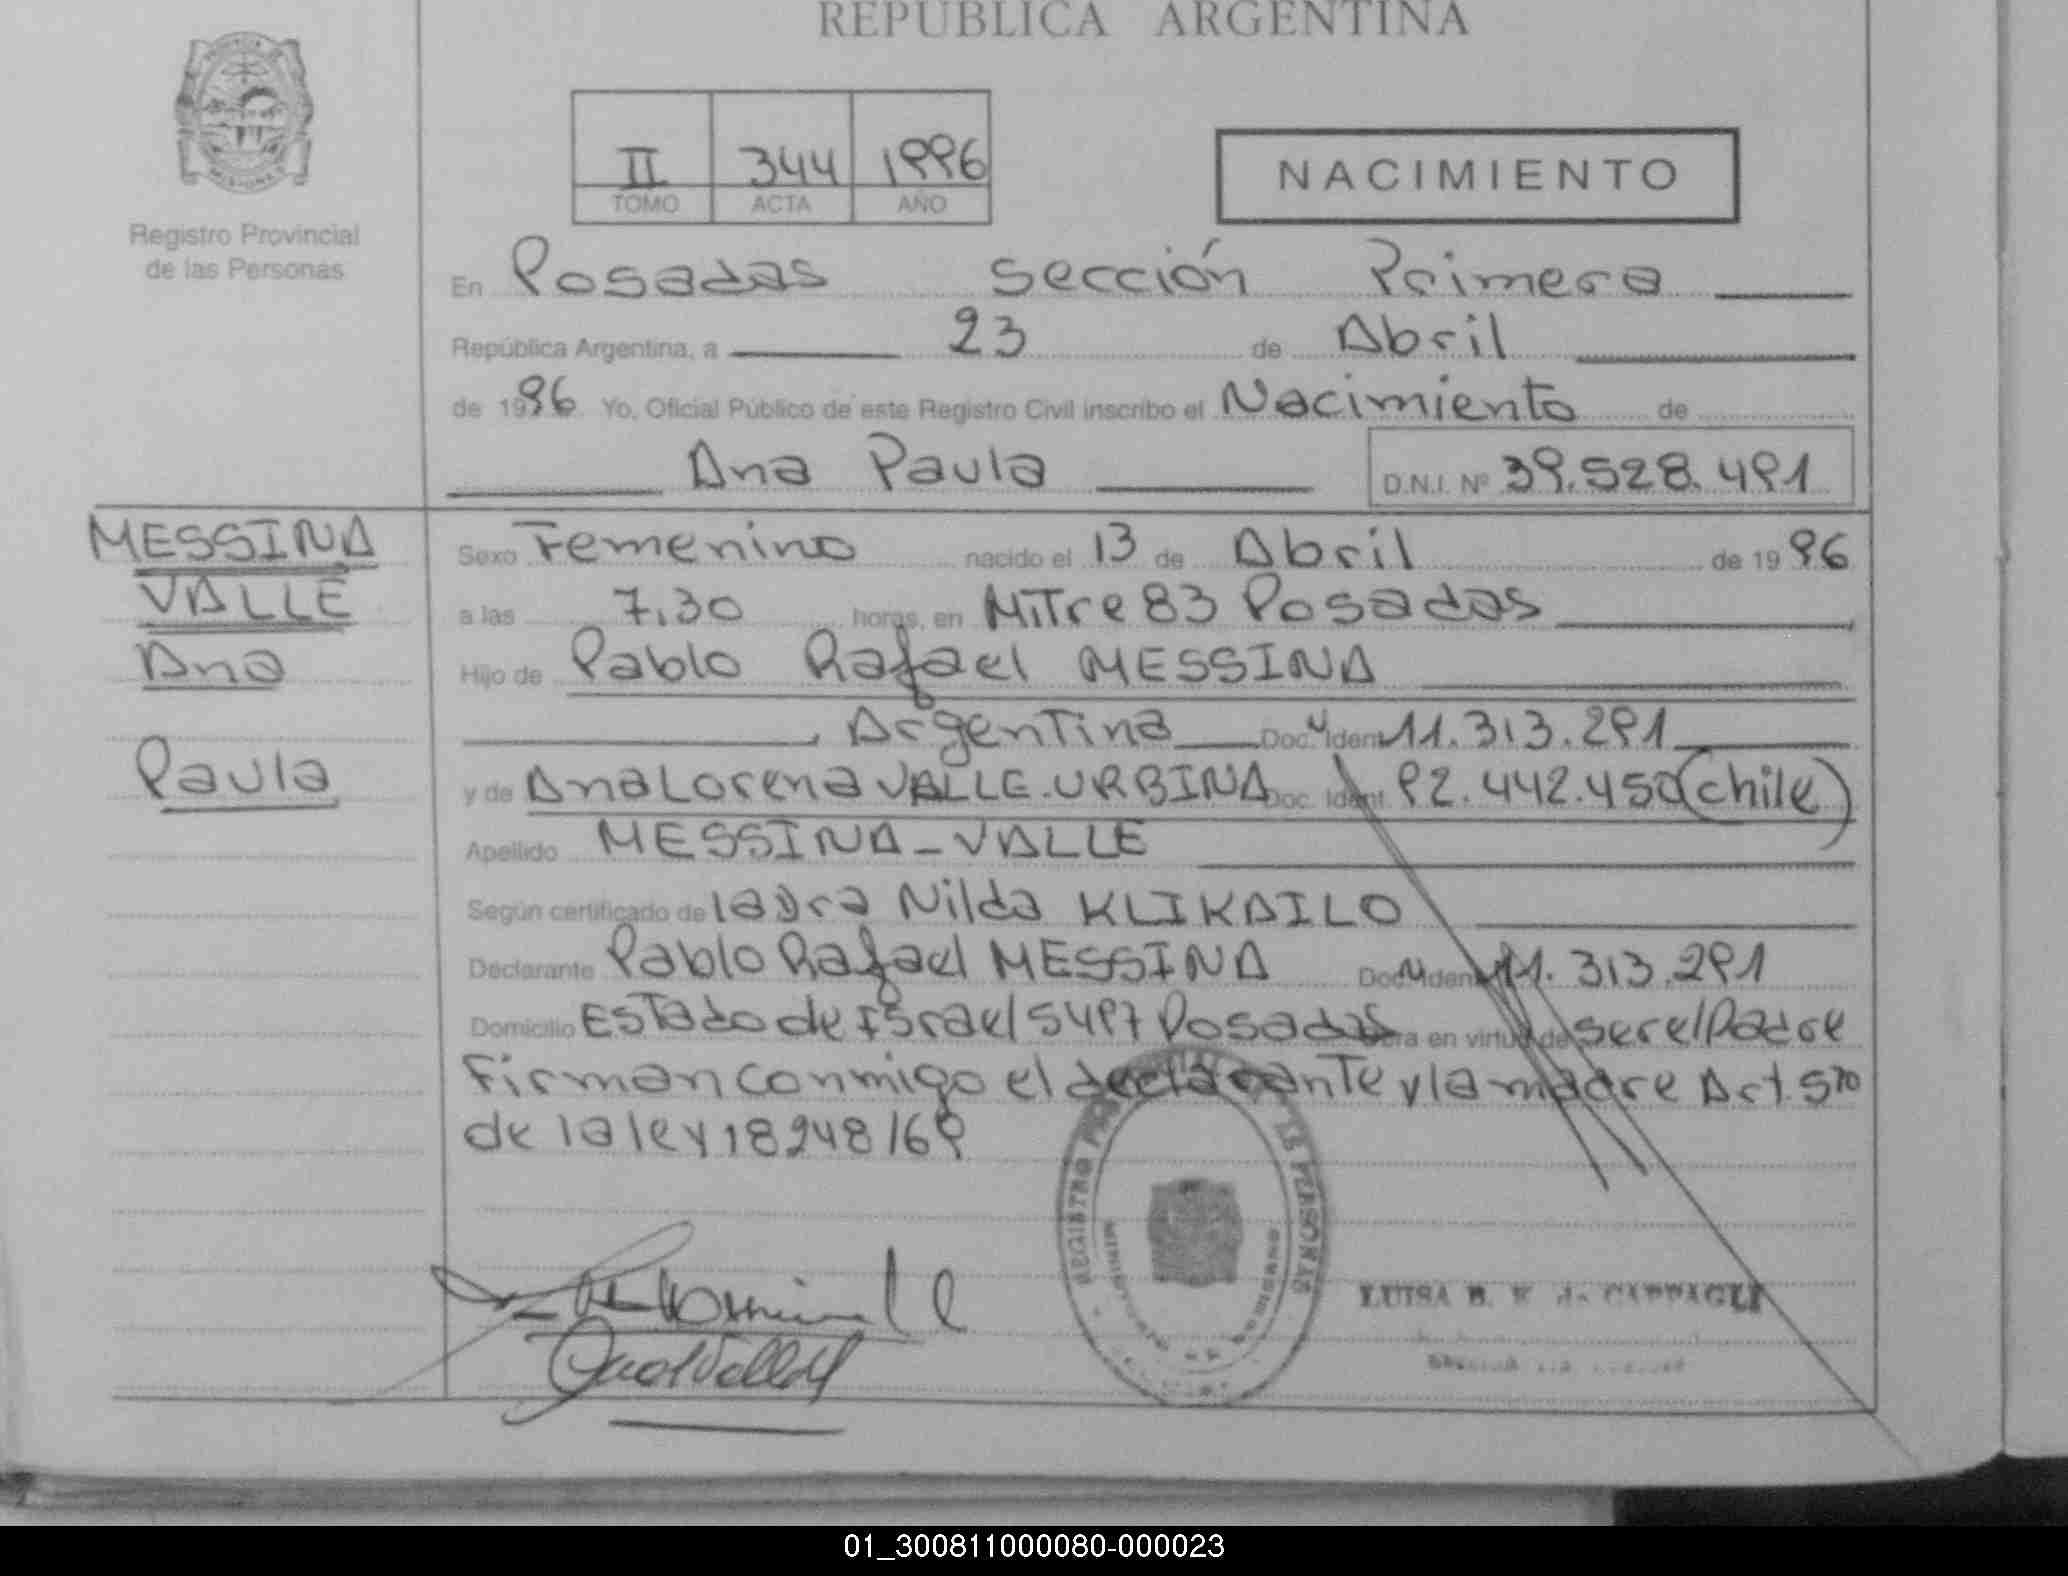 REPUBLICA ARGENTINA
II 344 1996
TOMO ACTA AÑO
NACIMIENTO
Registro Provincial
de las Personas
En Posadas sección Primera
República Argentina, a 23 de Abril
de 1996 Yo, Oficial Público de este Registro Civil inscribo el Nacimiento de
Ana Paula D.N.I. Nº 39.528.491
MESSINA
VALLE
Ana
Paula
Sexo Femenino nacido el 13 de Abril de 1996
a las 7,30 horas, en Mitre 83 Posadas
Hijo de Pablo Rafael MESSINA
, Argentina Doc. Ident 11.313.291
y de Ana Lorena VALLE.URBINA Doc. Ident. 92.442.450 (chile)
Apellido MESSINA-VALLE
Según certificado de laura Nilda KLIKAILO
Declarante Pablo Rafael MESSINA Doc. Ident 11.313.291
Domicilio Estado de Israel 5497 Posadas en virtud de ser el Padre
Firman conmigo el declarante y la madre Art. 5to
de la ley 18248/69
REGISTRO LAS PERSONAS
LUISA B. de CAPPAGLI
01_300811000080-000023